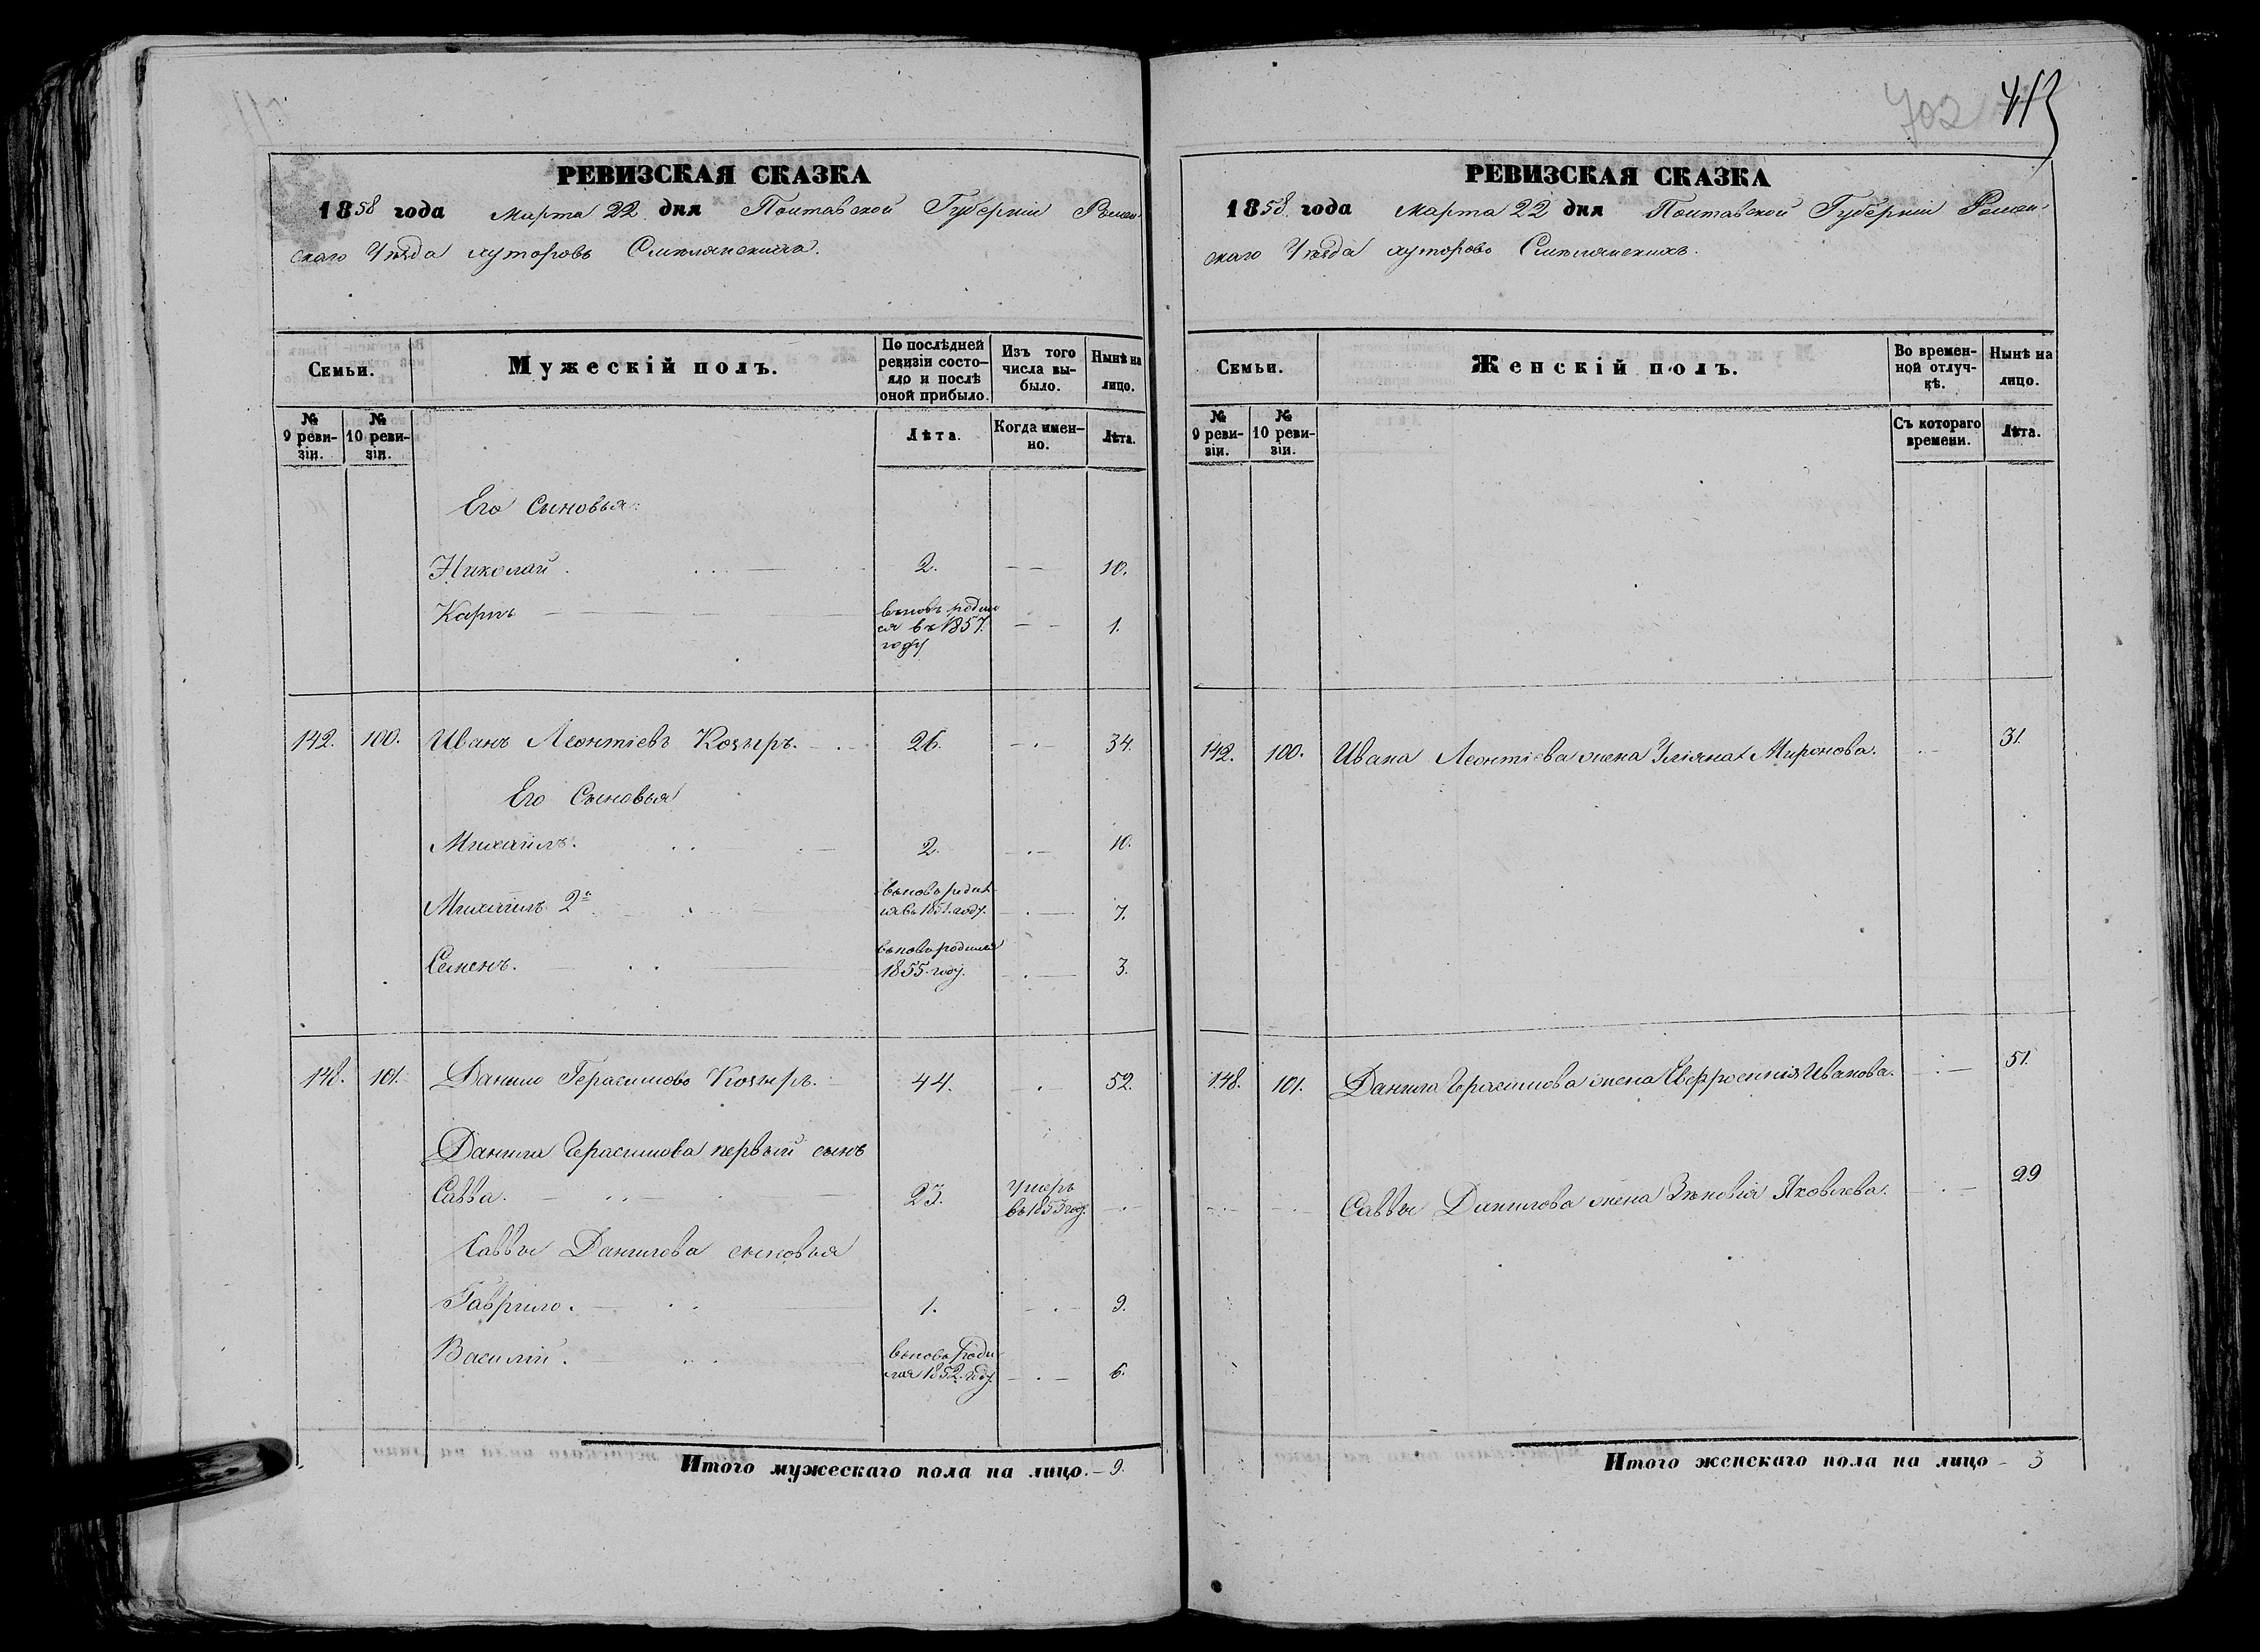 702 413
РЕВИЗСКАЯ СКАЗКА
1858 года Марта 22 дня Полтавской Губерніи Ромен-
скаго Уѣзда хуторовъ Смѣлянскихъ.
Семьи.
Мужескій полъ.
По послѣдней
ревизіи состо-
яло и послѣ
оной прибыло.
Изъ того
числа вы-
было.
Нынѣ на
лицо.
№
9 реви-
зіи.
№
10 реви-
зіи.
Лѣта.
Когда имен-
но.
Лѣта.
Его Сыновья:
Николай. 2. 10.
Карпъ вновь родил
ся въ 1857.
году 1.
142. 100. Иванъ Леонтіевъ Козыръ. 26. 34.
Его Сыновья
Михаилъ. 2. 10.
Михаилъ 2й вновь родил
ся въ 1851. году. 7.
Семенъ. вновь родился
1855. году. 3.
148. 101. Данило Герасимовъ Козыръ. 44. 52.
Данила Герасимова первый сынъ
Савва. 23. умеръ
въ 1853 год.
Саввы Данилова сыновья
Гаврило. 1. 9.
Василій. вновь роди
лся 1852. году. 6.
Итого мужескаго пола на лицо. – 9.
РЕВИЗСКАЯ СКАЗКА
1858 года Марта 22 дня Полтавской Губерніи Ромен-
скаго Уѣзда хуторовъ Смѣлянскихъ.
Семьи.
Женскій полъ.
Во времен-
ной отлуч-
кѣ.
Нынѣ на
лицо.
№
9 реви-
зіи.
№
10 реви-
зіи.
Съ котораго
времени.
Лѣта.
142. 100. Ивана Леонтіева жена Уліяна Миронова. 31.
148. 101. Данила Герасимова жена Евфросинія Иванова. 51.
Саввы Данилова жена Зѣновія Яковлева. 29
Итого женскаго пола на лицо – 3